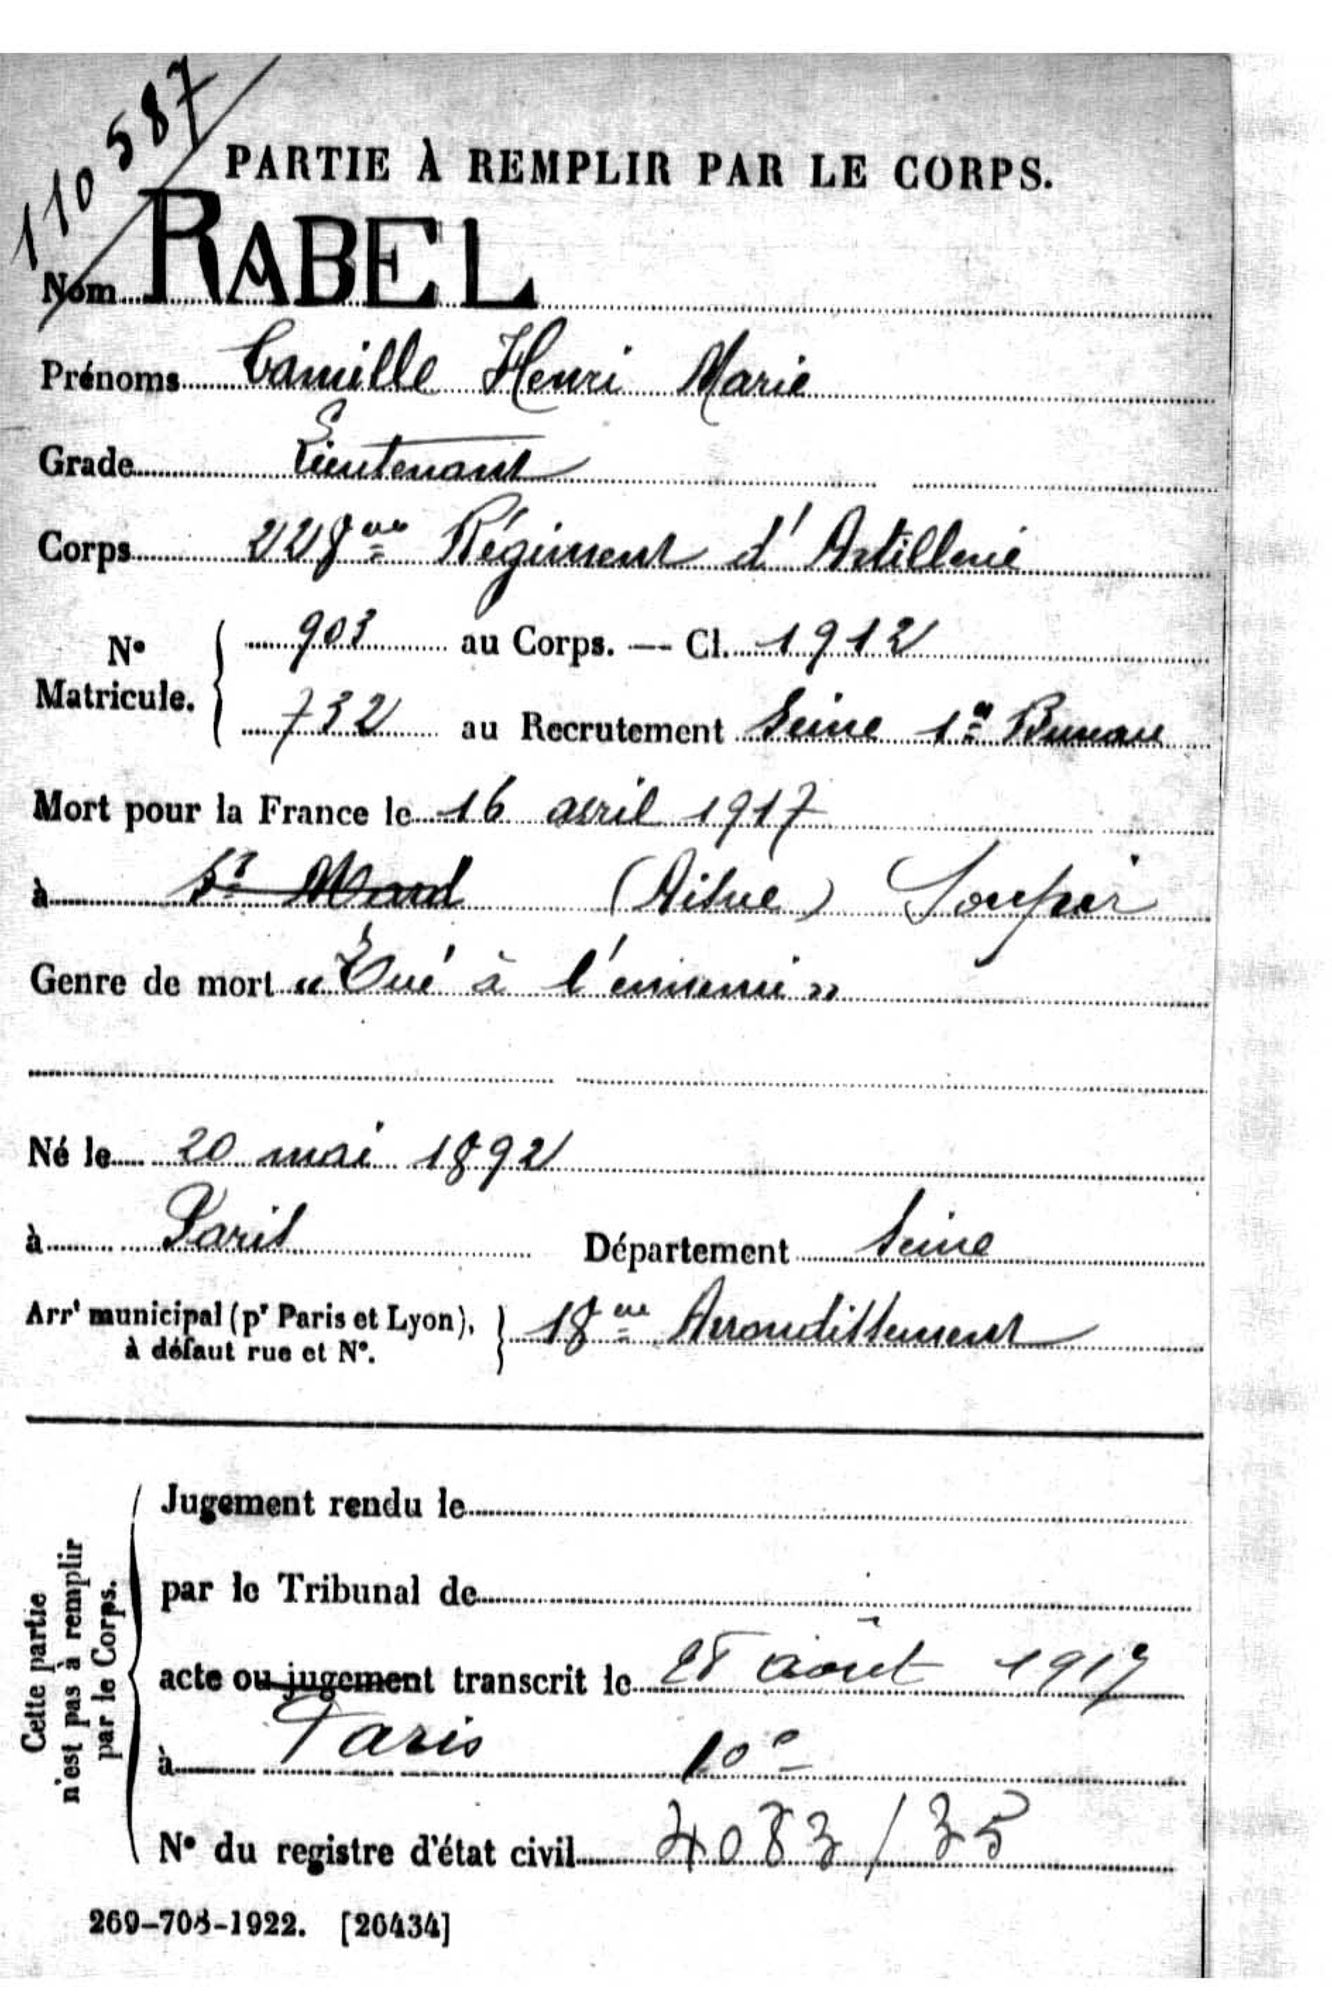 110587
PARTIE À REMPLIR PAR LE CORPS.
Nom RABEL
Prénoms Camille Henri Marie
Grade Lieutenant
Corps 228me Régiment d'Artillerie
No Matricule. { 903 au Corps. — Cl. 1912
732 au Recrutement Seine 1er Bureau
Mort pour la France le 16 avril 1917
à St Mard (Aisne) Soupir
Genre de mort « Tué à l'ennemi »
Né le 20 mai 1892
à Paris Département Seine
Arrt municipal (pr Paris et Lyon), à défaut rue et No. } 18me Arrondissement
Cette partie n'est pas à remplir par le Corps.
Jugement rendu le
par le Tribunal de
acte ou jugement transcrit le 28 août 1917
à Paris 10e
No du registre d'état civil 4083/35
269-708-1922. [26434]